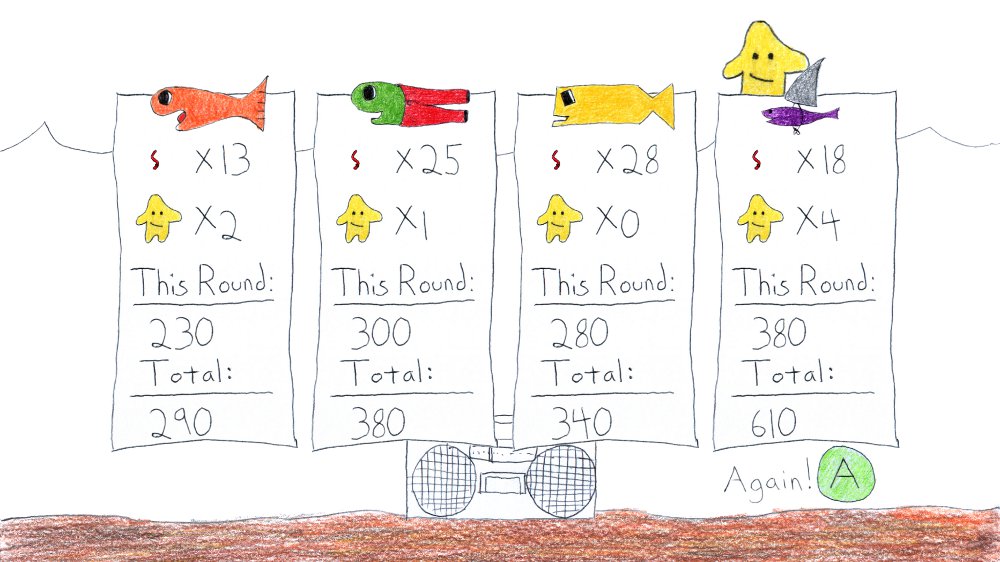 X13
X2
This Round:
230
Total:
290
X25
X1
This Round:
300
Total:
380
X28
X0
This Round:
280
Total:
340
X18
X4
This Round:
380
Total:
610
Again! A